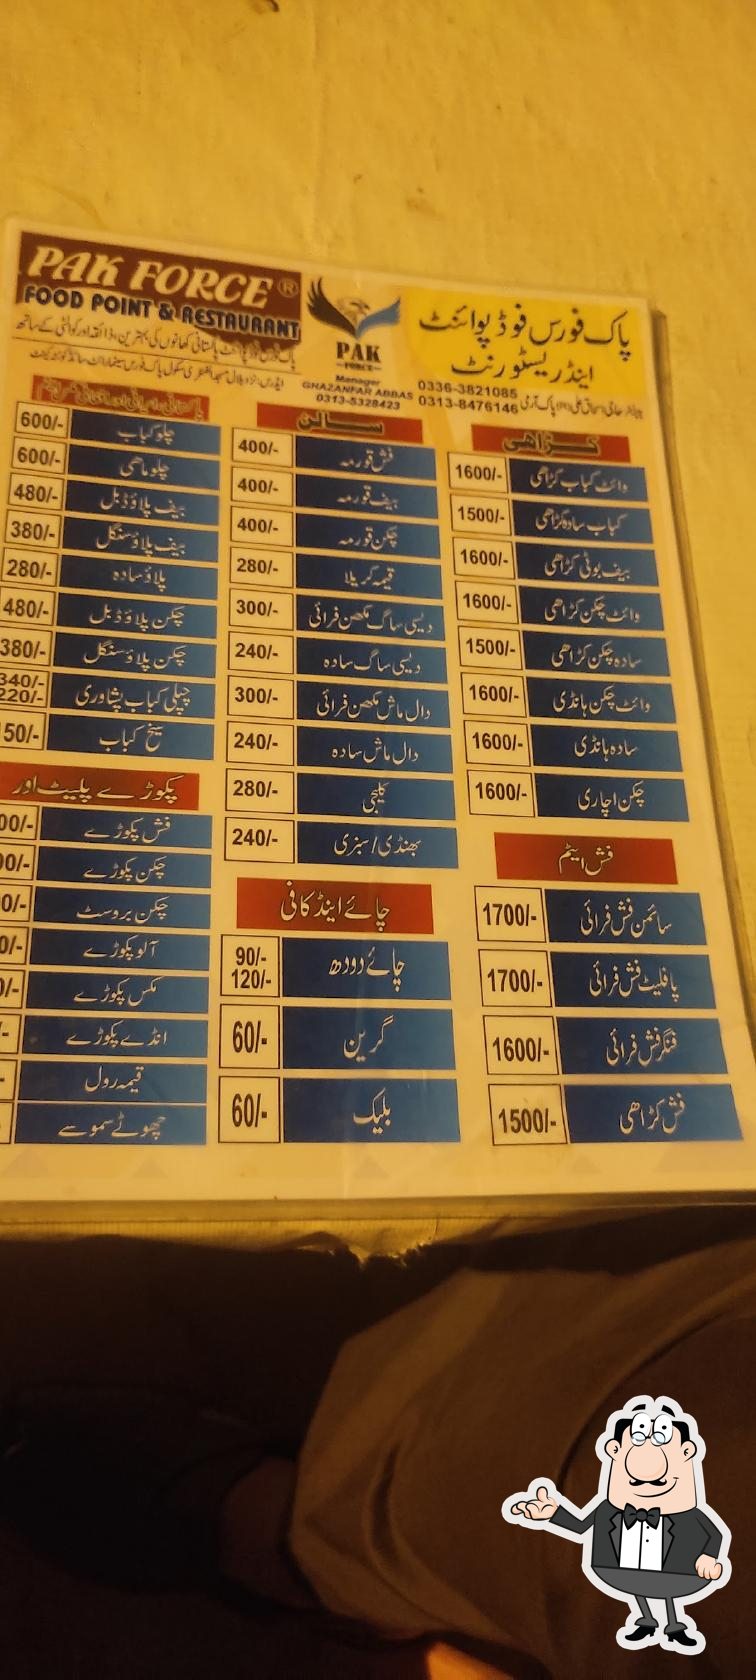 PAK FORCE ®
FOOD POINT & RESTAURANT
PAK
FORCE
Manager
GHAZANFAR ABBAS
0313-5328423
پاک فورس فوڈ پوائنٹ
اینڈ ریسٹورنٹ
0336-3821085
0313-8476146
کڑاھی
وائٹ کباب کڑاھی 1600/-
کباب سادہ کڑاھی 1500/-
بیف بوٹی کڑاھی 1600/-
وائٹ چکن کڑاھی 1600/-
سادہ چکن کڑاھی 1500/-
وائٹ چکن ہانڈی 1600/-
سادہ ہانڈی 1600/-
چکن اچاری 1600/-
فش ایٹم
سائمن فش فرائی 1700/-
پافلیٹ فش فرائی 1700/-
فنگر فش فرائی 1600/-
فش کڑاھی 1500/-
سالن
فش قورمہ 400/-
بیف قورمہ 400/-
چکن قورمہ 400/-
قیمہ کریلا 280/-
دیسی ساگ مکھن فرائی 300/-
دیسی ساگ سادہ 240/-
دال ماش مکھن فرائی 300/-
دال ماش سادہ 240/-
کلیجی 280/-
بھنڈی/سبزی 240/-
چائے اینڈ کافی
چائے دودھ 90/- 120/-
گرین 60/-
بلیک 60/-
پاکستانی، ایرانی اور افغانی
چلو کباب 600/-
چلو ماھی 600/-
بیف پلاؤ ڈبل 480/-
بیف پلاؤ سنگل 380/-
پلاؤ سادہ 280/-
چکن پلاؤ ڈبل 480/-
چکن پلاؤ سنگل 380/-
چپلی کباب پشاوری 340/- 220/-
سیخ کباب 50/-
پکوڑے پلیٹ اور
فش پکوڑے 00/-
چکن پکوڑے 00/-
چکن بروسٹ 0/-
آلو پکوڑے 0/-
مکس پکوڑے 0/-
انڈے پکوڑے /-
قیمہ رول -
چھوٹے سموسے